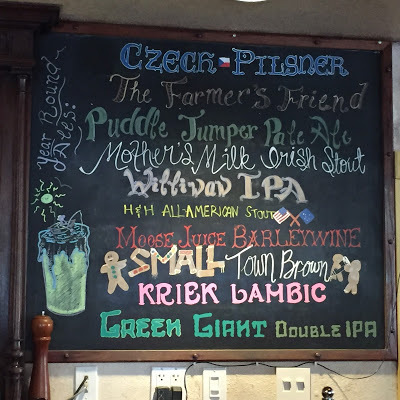 Year Round
Ales:
Czech Pilsner
The Farmer's Friend
Puddle Jumper Pale Ale
Mother's Milk Irish Stout
IPA
H&H ALL-AMERICAN STOUT
Moose Juice Barleywine
SMALL Town Brown
KRIEK LAMBIC
GREEN GIANT DOUBLE IPA